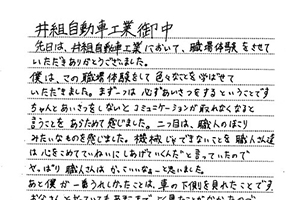 井組自動車工業御中
先日は、井組自動車工業において、職場体験をさせて
いただきありがとうございました。
僕は、この職場体験をして色々なことを学ばせて
いただきました。まず一つは必ずあいさつをするということです
ちゃんとあいさつをしないとコミュニケーションが取れなくなると
言うことをあらためて感じました。二つ目は、職人のほこり
みたいなものを感じました。機械じゃできないことを職人さん達
は心をこめてていねいにしあげていくんだと言っていたので
やっぱり職人さんは、かっこいいなぁーと思いました。
あと僕が一番うれしかったことは、車の下側を見れたことです